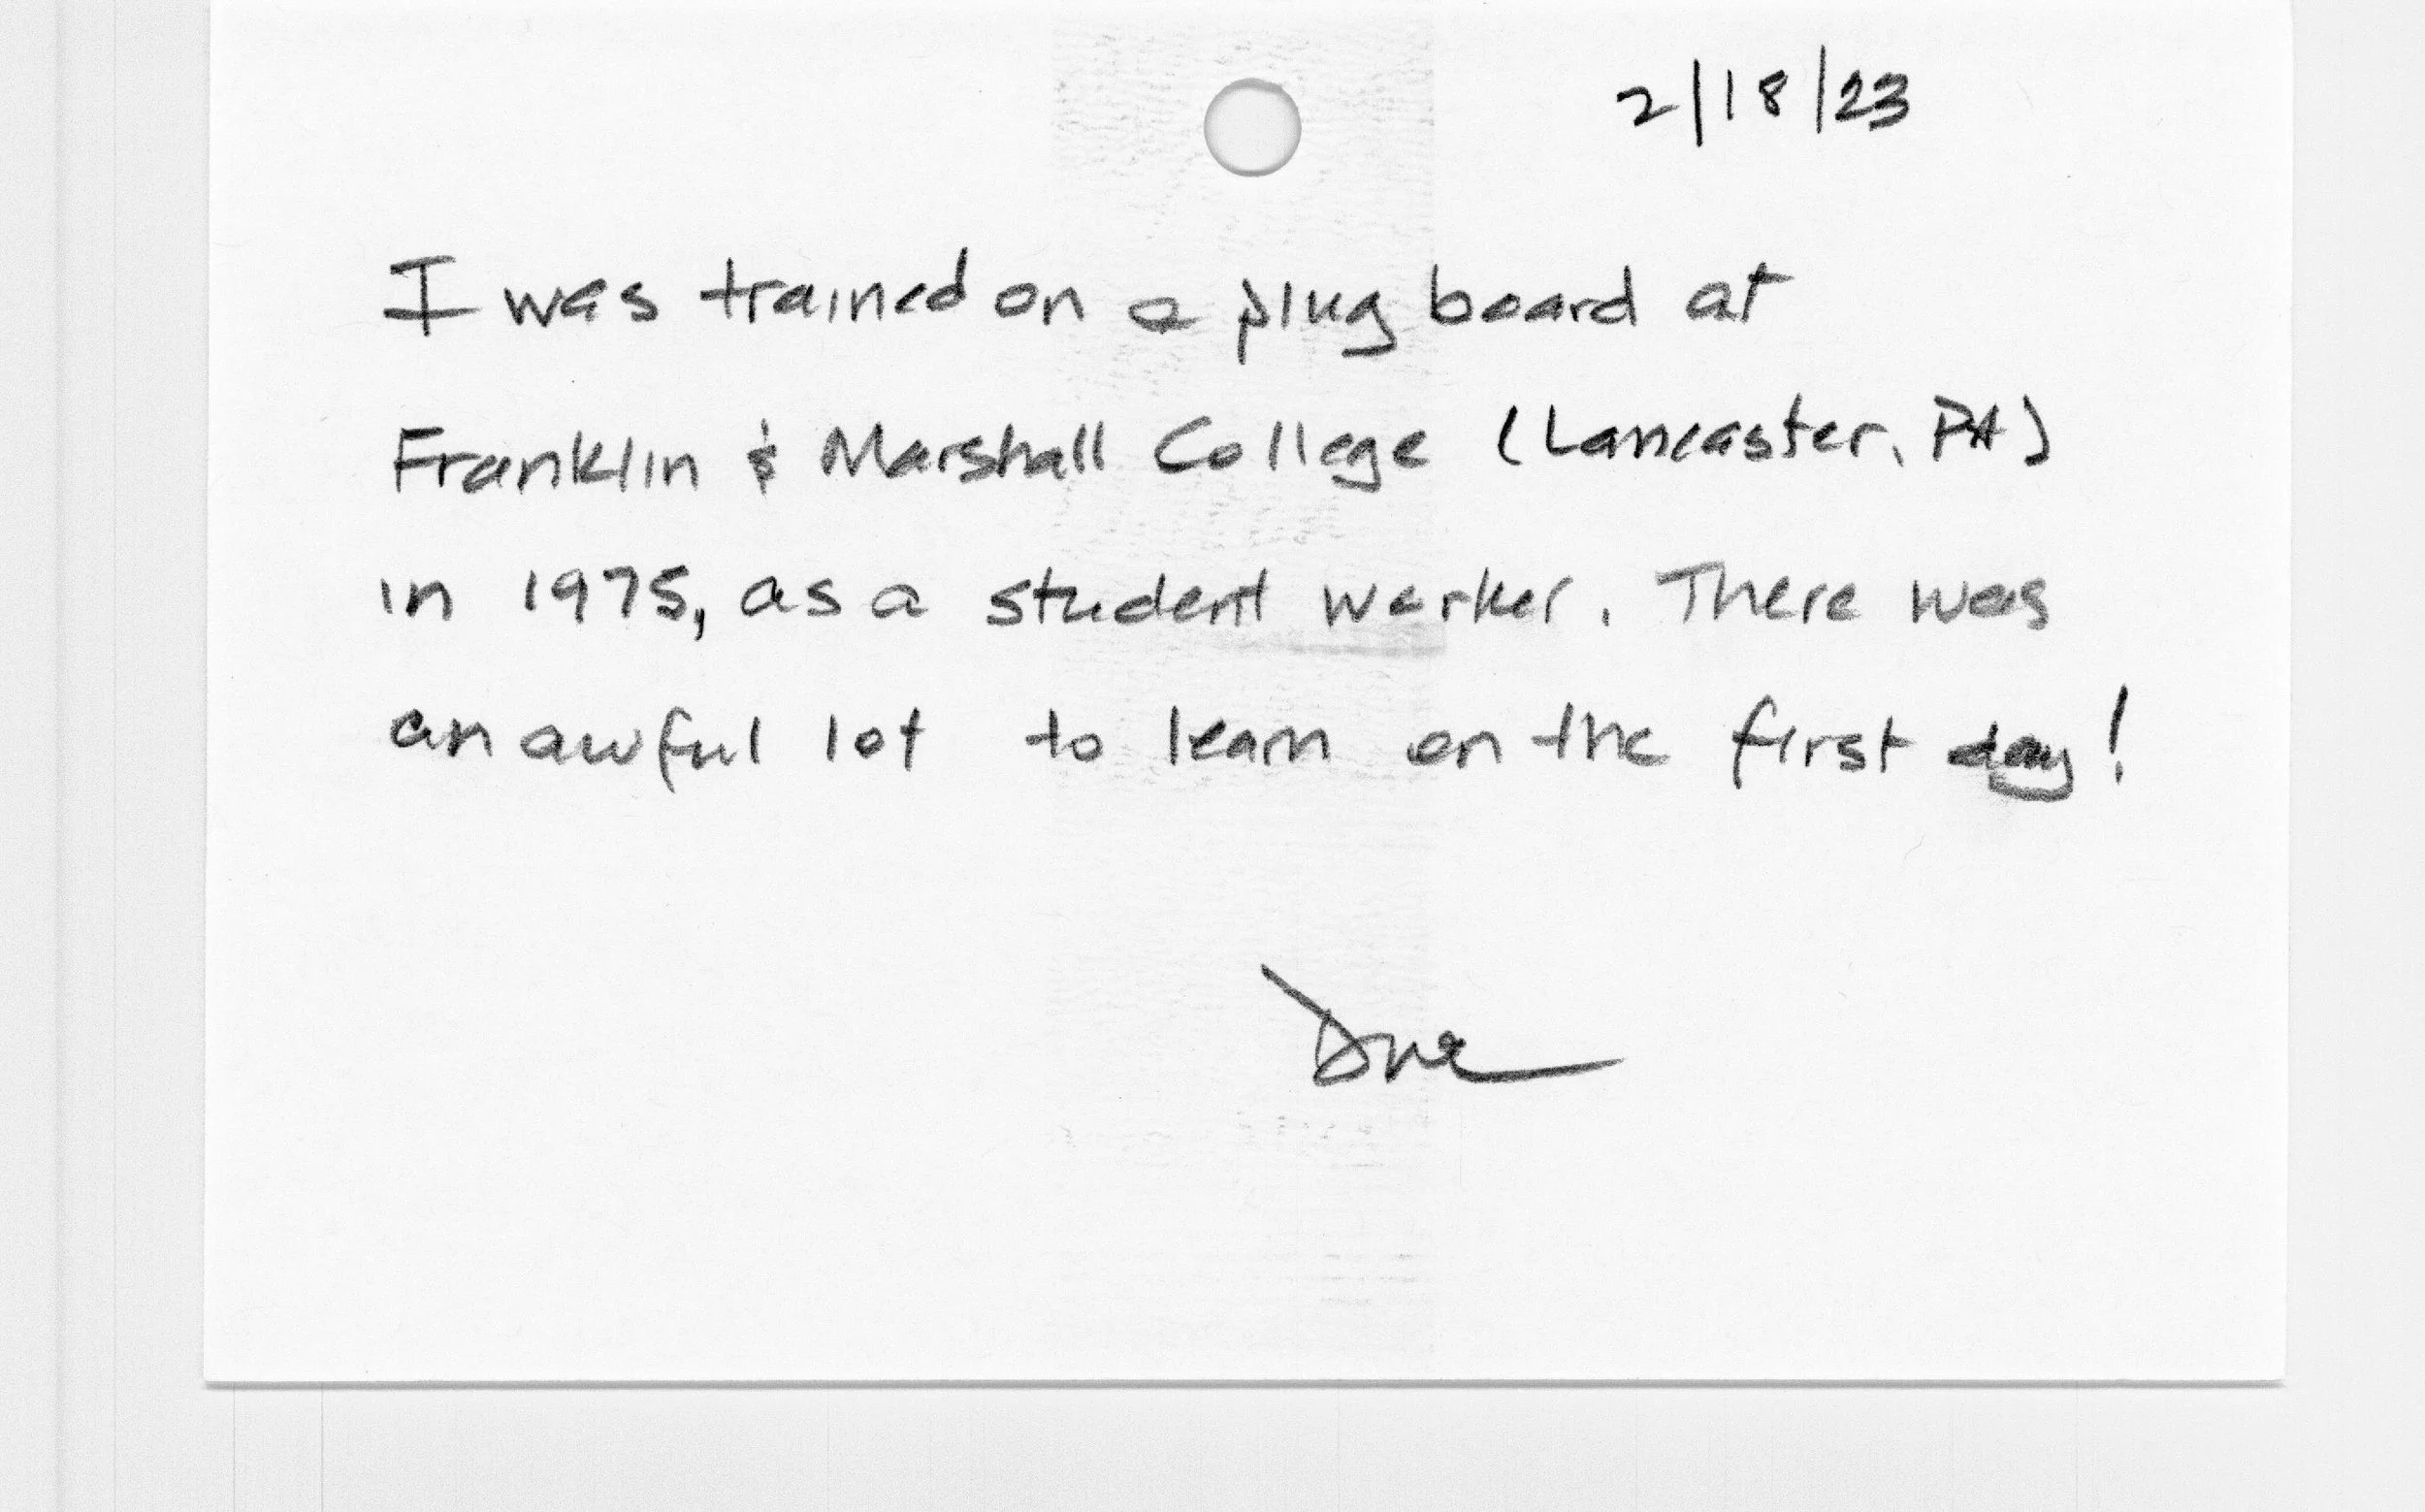 2/18/23
I was trained on a plug board at
Franklin & Marshall College (Lancaster, PA)
in 1975, as a student worker. There was
an awful lot to learn on the first day!